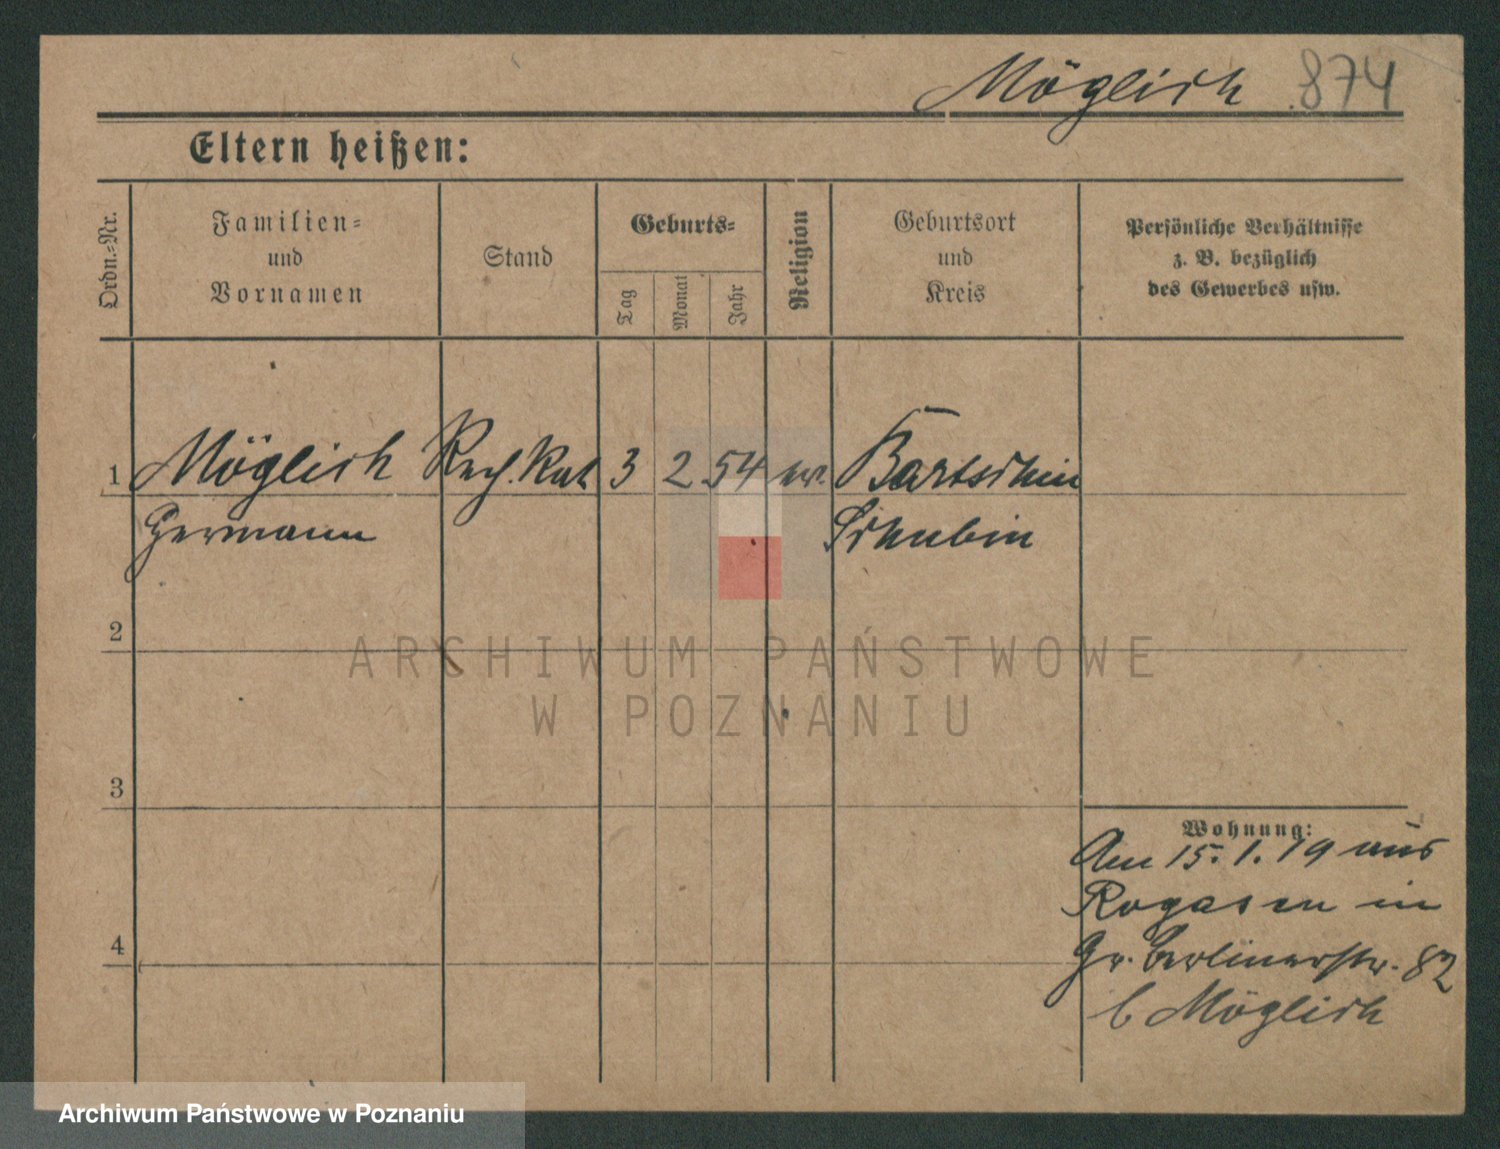 Möglich 874
Eltern heißen:
Ordn.-Nr.
Familien-
und
Vornamen
Stand
Geburts-
Tag
Monat
Jahr
Religion
Geburtsort
und
Kreis
Persönliche Verhältnisse
z. B. bezüglich
des Gewerbes usw.
1 Möglich Rech. Rat 3 2 54 ev. Bartschin
Hermann Schubin
2
3
4
Wohnung:
Am 15.1.19 aus
Rogasen in
Gr. Berlinerstr. 82
b Möglich
ARCHIWUM PAŃSTWOWE
W POZNANIU
Archiwum Państwowe w Poznaniu